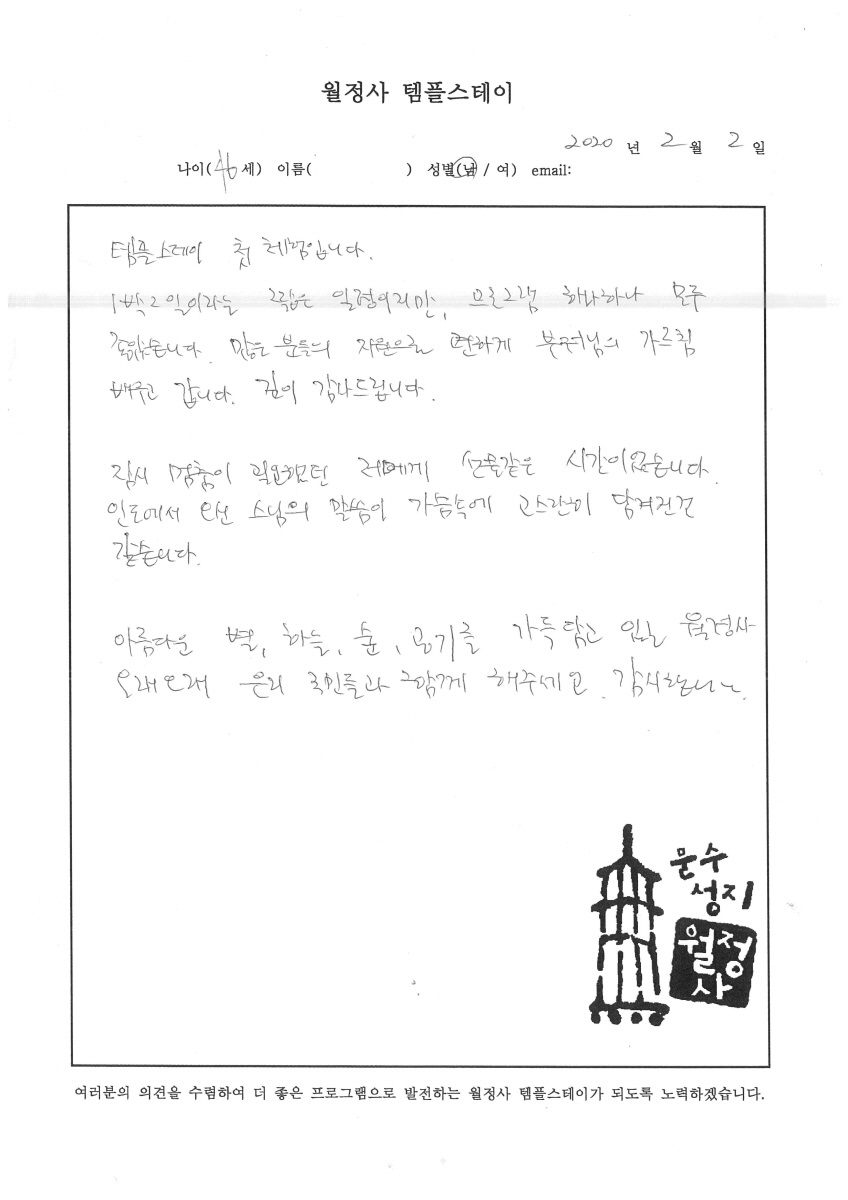 월정사 템플스테이
2020 년 2 월 2 일
나이(46세) 이름( ) 성별(남 / 여) email:
템플스테이 첫 체험입니다.
1박2일이라는 짧은 일정이지만, 프로그램 하나하나 모두
좋았습니다. 많은 분들의 지원으로 편하게 부처님의 가르침
배우고 갑니다. 깊이 감사드립니다.
잠시 멈춤이 필요했던 저에게 선물같은 시간이었습니다.
인도에서 오신 스님의 말씀이 가슴속에 고스란히 담겨진건
같습니다.
아름다운 별, 하늘, 숲, 공기를 가득 담고 있는 월정사
오래오래 우리 국민들과 함께 해주세요. 감사합니다.
문수
성지
월정
사
여러분의 의견을 수렴하여 더 좋은 프로그램으로 발전하는 월정사 템플스테이가 되도록 노력하겠습니다.